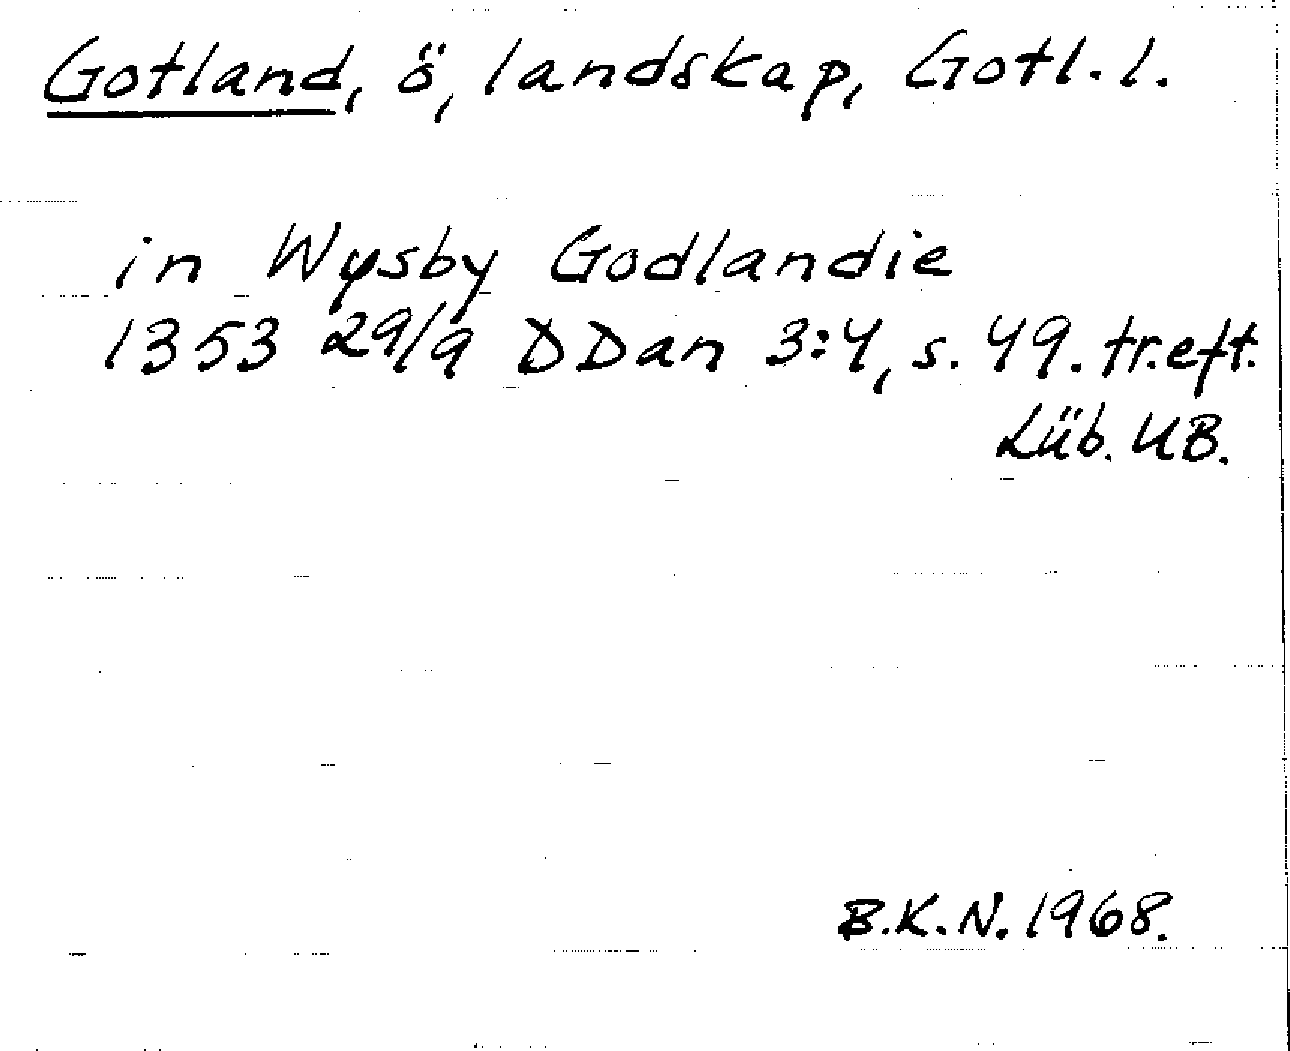 Gotland, ö, landskap, Gotl. l.
in Wysby Godlandie
1353 29/9 DDan 3:4, s. 49. tr. eft.
Lüb. UB.
B.K.N. 1968.